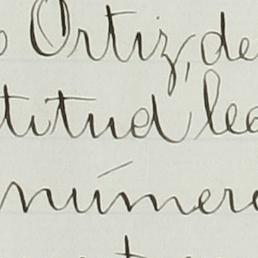 o Ortiz, de
titud le
número